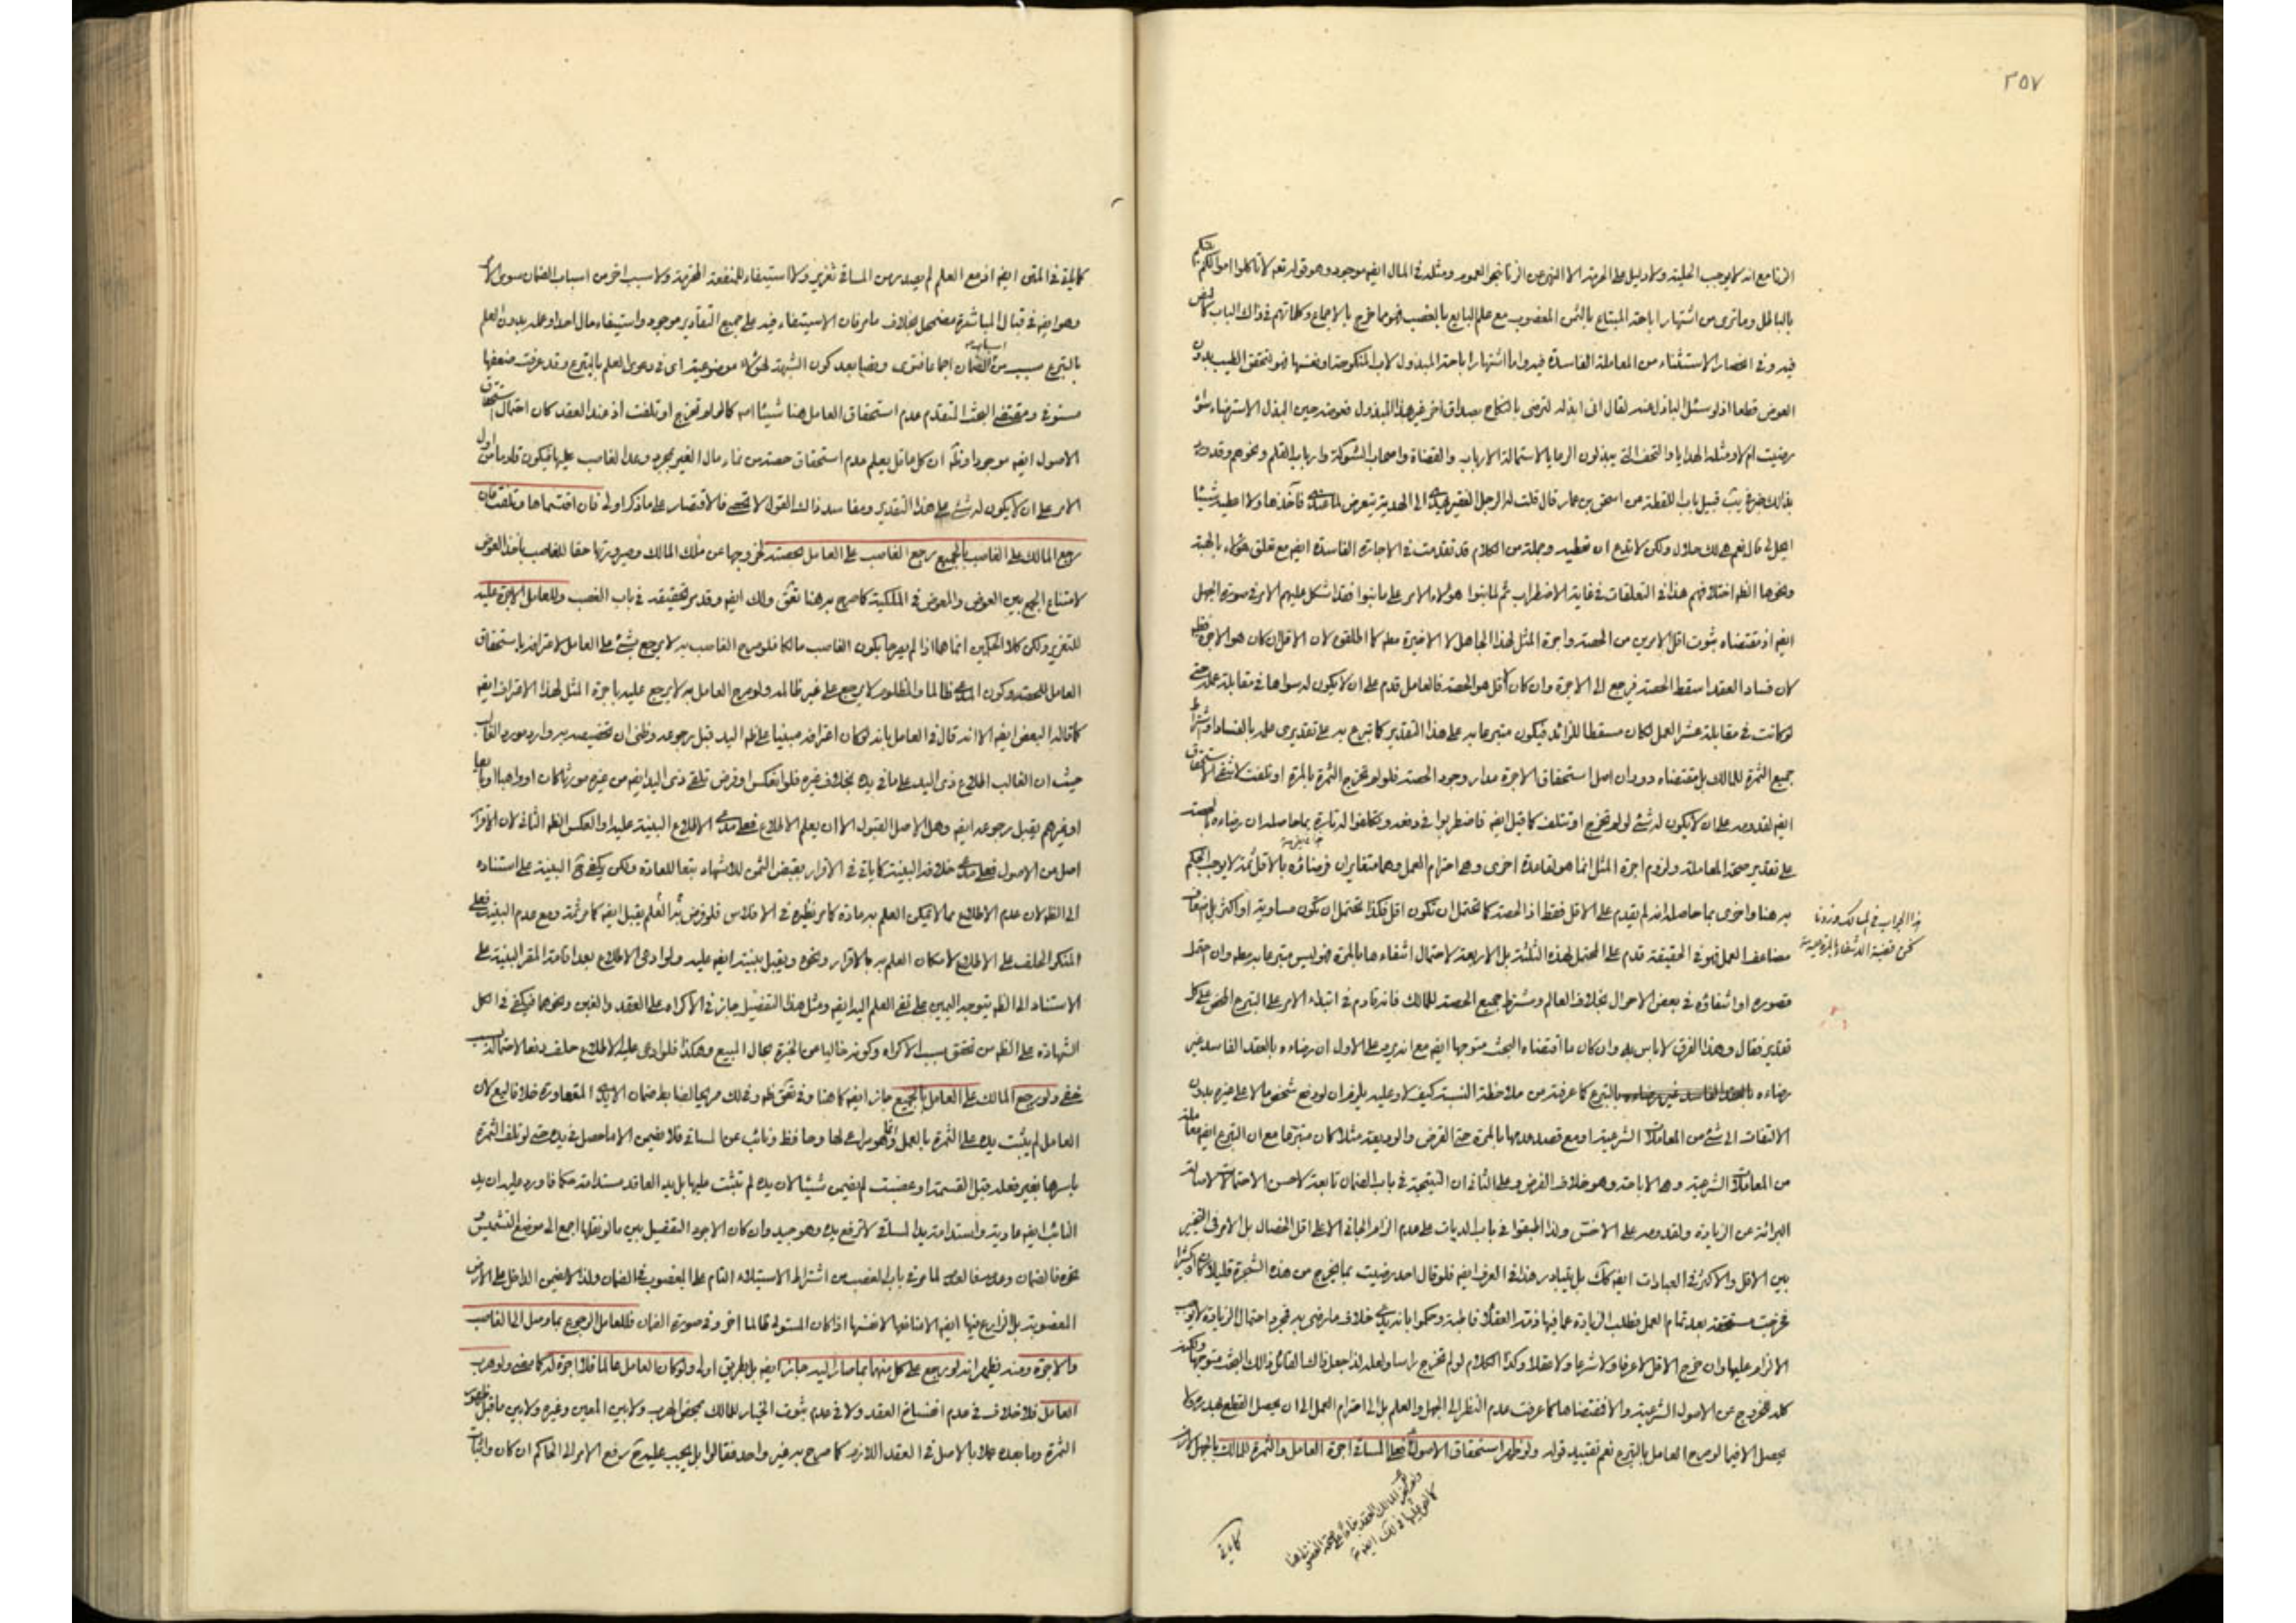 ٢٥٧
الزنا مع انه لا يوجب الحلية ولا دليل على الحرمة الا النهى عن الزنا نحو العموم ومثله فى المال ايضا موجود وهو قوله تعه لا تاكلوا اموالكم بينكم
بالباطل وما ترى من اشتهار اباحة المبتاع بالثمن المغصوب مع علم البايع بالغصب فهو مما خرج بالاجماع وكلماتهم فى ذالك الباب
فيه وفى انحصار الاستثناء من المعاملة الفاسدة فيه واما اشتهار اباحة المبذول لاب المنكوحة او نفسها فهو لتحقق الطيب بدون
العوض قطعا اذ لو سئل الباذل عنه لقال انى ابذله لترضى بالنكاح بصداق اخر غير هذا المبذول فعوضه حين البذل الاسترضاء سواء
رضيت ام لا ومثله الهدايا والتحف التى يبذلون الرعايا لاستمالة الارباب والقضاة واصحاب الشوكة وارباب القلم ونحوهم وقد ورد
بذالك قبيل باب اللقطة عن اسحق بن عمار قال قلت له الرجل الفقير يهدى الى الهدية يتعرض لما عندى فآخذها ولا اعطيه شيئا
ايحل لى قال نعم هى لك حلال ولكن لا تدع ان تعطيه وجملة من الكلام قد تقدمت فى الاجارة الفاسدة ايضا مع تعلق بالهبة
ونحوها اختلافهم هذا فى التعلقات فى غاية الاضطراب ثم لما بنوا هؤلاء الامر على ما بنوا فقد اشكل عليهم الامر فى صورة الجهل
ايضا اذ مقتضاه ثبوت اقل الامرين من الحصة واجرة المثل لهذا الجاهل لا الاخيرة كما اطلقوا لان الاقل ان كان هو الاجرة
لان فساد العقد اسقط الحصة فرجع الى الاجرة وان كان الاقل هو الحصة فالعامل قدم على ان لا يكون له سواها فى مقابلة عمله حتى
لو كانت فى مقابلة عشر العمل لكان مسقطا للزائد فيكون متبرعا به على هذا التقدير كما تبرع به على تقديرى علمه بالفساد او اشتراط
جميع الثمرة للمالك بل مقتضاه دوران اصل استحقاق الاجرة مدار وجود الحصة فلو لم تخرج الثمرة بالمرة او تلفت لانتفى الاستحقاق
ايضا لقدومه على ان لا يكون له شئ لو لم تخرج او تتلف كما قيل ايضا فاضطربوا فى دفعه وتكلفوا له تارة بما حاصله ان رضاه بالحصة
على تقدير صحة المعاملة ولزوم اجرة المثل انما هو لقاعدة اخرى وهى احترام العمل وهما متغايران فرضائه بالاقل ثمة لا يوجب الحكم
به هنا واخرى بما حاصله انه لم يقدم على الاقل فقط اذ الحصة كما تحتمل ان تكون اقل فكذا تحتمل ان تكون مساوية او اكثر
مضاعف العمل فهو فى الحقيقة قدم على المحتمل لهذه الثلثة بل الاربعة لاحتمال انتفاءها بالمرة فهو ليس متبرعا به وان احتمل
قصوره او انتفاؤه فى بعض الاحوال بخلاف العالم ومشترط جميع الحصة للمالك فانه قادم فى ابتداء الامر على التبرع المحض على كل
تقدير فقال وهذا الفرق لا باس به وان كان ما اقتضاه البحث متوجها ايضا مع انه يرد على الاول ان رضاءه بالعقد الفاسد غير
رضاءه بالتبرع كما عرفت من ملاحظة النسبة كيف لا وعليه يلزم ان لو دفع شخص مالا على غيره بدون
الالتفات الى شئ من المعاملات الشرعية او مع قصد عدمها بالمرة حتى القرض والوديعة مثلا كان متبرعا مع ان التبرع ايضا معاملة
من المعاملات الشرعية وهى الاباحة وهو خلاف الفرض وعلى الثانى ان النتيجة فى باب الضمان تابعة لاخس الاحتمالات لاصالة
البرائة عن الزيادة ولقدومه على الاخس ولذا اطبقوا فى باب الديات على عدم الزام الجانى الا على اقل الخصال بل الامر فى التخيير
بين الاقل والاكثر فى العبادات ايضا كك بل يتبادر هذا فى العرف ايضا فلو قال احد رضيت بما يخرج من هذه الشجرة قليلا كان او كثيرا
فخرجت مستحقة بعد تمام العمل فطلب الزيادة عما فيها فذمه العقلاء قاطبة وحكموا بانه يدعى خلاف ما رضى به فمجرد احتمال الزيادة لا يوجب
الالزام عليها وان خرج الاقل لا عرفا ولا شرعا ولا عقلا وكذا الكلام لو لم تخرج راسا ولعله لذا جعل ذالك القائل ذالك البحث متوجها ولكنه
كله للخروج عن الاصول الشرعية والا فمقتضاها كما عرفت عدم النظر الى الجهل والعلم بل الى احترام العمل الى ان يحصل القطع بهدره ولا
يحصل الا فيما لو صرح العامل بالتبرع نعم تقييد قوله ولو ظهر استحقاق الاصول فعلى المساقى اجرة العامل والثمرة للمالك بالجهل
كما يأتى
كما يأتى فى المتن ايضا اذ مع العلم لم يصدر من المساقى تغرير ولا استيفاء للمنفعة المحترمة ولا سبب اخر من اسباب الضمان سوى الامر
وهو ايضا فى قبال المباشرة مضمحل بخلاف ما مر فان الاستيفاء فيه على جميع التقادير موجود واستيفاء مال احد او عمله بدون العلم
بالتبرع سبب من اسباب الضمان اجماعا فتوى ونصا بعد كون الشبهة لهؤلاء موضوعية اى فى دعوى العلم بالتبرع وقد عرفت ضعفها
مستوفى ومقتضى البحث المتقدم عدم استحقاق العامل هنا شيئا كما لو لم تخرج او تلفت اذ عند العقد كان احتمال استحقاق
الاصول ايضا موجودا ان كل عاقل يعلم عدم استحقاق حصة من نماء مال الغير بمجرد وعد الغاصب عليها فيكون قادما من اول
الامر على ان لا يكون له شئ على هذا التقدير ومفاسد ذالك القول لا تحصى فالاقتصار على ما ذكر اولى فان اقتسماها وتلفت فان
رجع المالك على الغاصب بالجميع رجع الغاصب على العامل بحصته لخروجها عن ملك المالك وصيرورتها حقا للغاصب باخذ العوض
لامتناع الجمع بين العوض والمعوض فى الملكية كما صرح به هنا ولك ايضا وقد مر تحقيقه فى باب الغصب وللعامل الاجرة عليه
للتغرير ولكن كلا الحكمين انما هما اذا لم يصرحا بكون الغاصب مالكا فلو صرح الغاصب به لا يرجع بشئ على العامل لاعترافه باستحقاق
العامل للحصة وكون المدعى ظالما والمظلوم لا يرجع على غير ظالمه ولو صرح العامل به لا يرجع عليه باجرة المثل لهذا الاقرار ايضا
كما قاله البعض ايضا الا انه قال فى العامل بانه لو كان اعترافه مبنيا على ظاهر اليد قبل رجوعه وظنى ان تخصيصه به وارد مورد الغالب
حيث ان الغالب اطلاع ذى اليد على ما فى يده بخلاف غيره فلو انعكس او فرض تلقى ذى اليد ايضا من غيره مورثا كان او واهبا او بايعا
او غيرهم يقبل رجوعه ايضا وهل الاصل القبول الا ان يعلم الاطلاع فعلى مدعى الاطلاع البينة عليه او العكس الثانى لان الاقرار
اصل من الاصول فعلى مدعى خلافه البينة كما ياتى فى الاقرار بقبض الثمن للاشهاد تبعا للعادة ولكن يكفى فى البينة على استناده
الى لان عدم الاطلاع مما لا يمكن العلم به عادة كما مر نظيره فى الافلاس فلو فرض العلم يقبل ايضا كما مر ثمة ومع عدم البينة فعلى
المنكر الحلف على الاطلاع لامكان العلم به بالاقرار ونحوه ويقبل بينته ايضا عليه ولو ادعى الاطلاع بعد اقامة المقر البينة على
الاستناد الى يتوجه اليمين على نفى العلم اليه ايضا ومثل هذا التفصيل جار فى الاكراه على العقد والغبن ونحوهما فيكفى فى الكل
الشهادة على من تحقق سبب الاكراه وكونه خاليا من الخبرة بحال المبيع وهكذا فلو ادعى عليه الاطلاع حلف دفعا لاحتمال سبب
خفى ولو رجع المالك على العامل بالجميع جاز ايضا كما هنا وفى ولك صريحا لضابط ضمان الايدى المتعاورة خلافا للبع لان
العامل لم يثبت يده على الثمرة بالعمل وانما هو مراع لها وحافظ ونائب عن المساقى فلا يضمن الا ما حصل فى يده حتى لو تلف الثمرة
باسرها بغير فعله قبل القسمة او غصبت لم يضمن شيئا لان يده لم تثبت عليها بل يد العاقد مستدامة حكما فاورد عليه ان يد
النائب ايضا عادية واستدامة يد المساقى لا ترفع يده وهو جيد وان كان الاجود التفصيل بين ما لو نقلها اجمع الى موضع لتشميس
نحوه فالضمان لما مر فى باب الغصب من اشتراط الاستيلاء التام على المغصوب فى الضمان ولذا لا يضمن الداخل على الارض
المغصوبة بل الزارع فيها ايضا الا منافعها لا نفسها اذا كان المستولى ظالما اخر وفى صورة الضمان فللعامل الرجوع بما وصل الى الغاصب
والاجرة ومنه يظهر انه لو رجع على كل منهما بما صار اليه جاز ايضا بل بطريق اولى ولو كان العامل عالما فلا اجرة له كما مضى ولو هرب
العامل فلا خلاف فى عدم انفساخ العقد ولا فى عدم ثبوت الخيار للمالك بمحض الهرب ولا بين المعين وغيره ولا بين ما قبل ظهور
الثمرة وما بعده عملا بالاصل فى العقد اللازم كما صرح به غير واحد فقالوا بل يجب عليه رفع الامر الى الحاكم ان كان واثبات